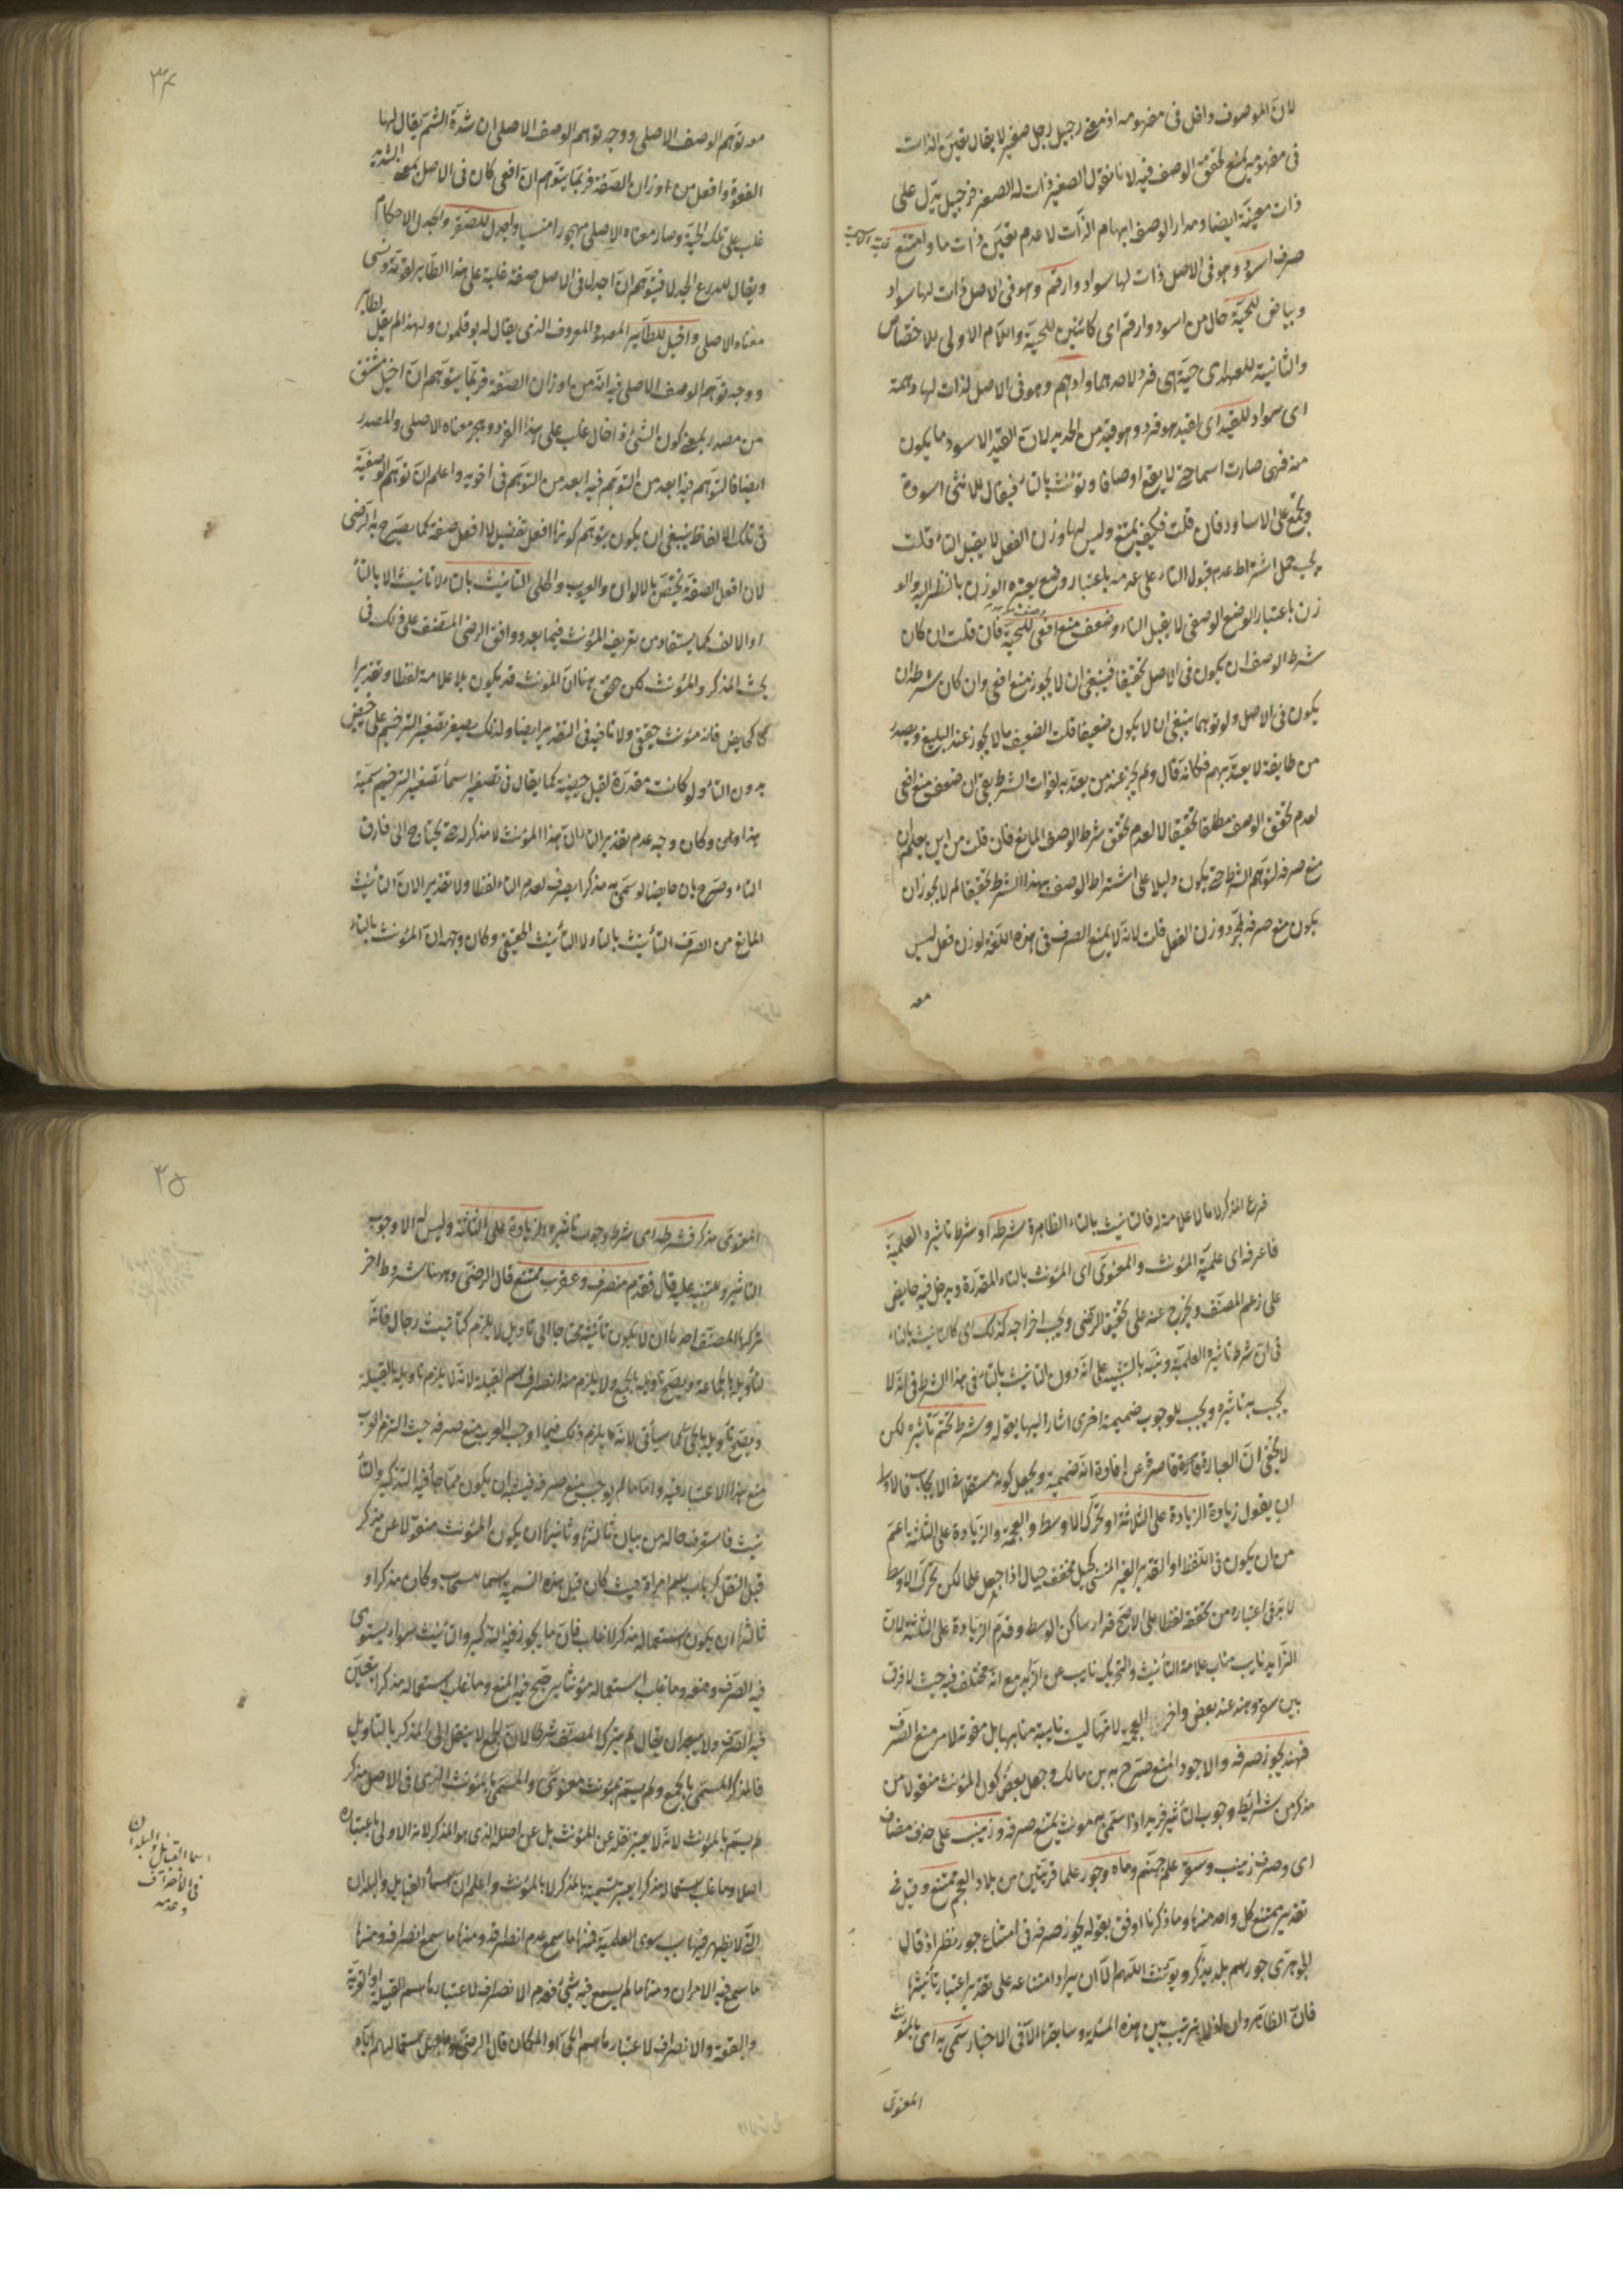 لان الموصوف داخل في مفهومه اذ معنى رجيل رجل صغير لا يقال تعين الذات
في مفهومه يمنع تحقق الوصف فيه لانا نقول الصغير ذات له الصغر فرجيل يدل على
ذات معينة ايضا ومدار الوصف ابهام الذات لا عدم تعين ذات ما وامتنع
صرف اسود وهو في الاصل ذات لها سواد وارقم وهو في الاصل ذات لها سواد
وبياض للحية حال من اسود وارقم اى كائنين للحية واللام الاولى للاختصاص
والثانية للعهد اى حية هى فرد لاحدهما وادهم وهو في الاصل لذات لها دهمة
اى سواد للقيد اى لقيد هو فرد وهو قيد من الحديد لان القيد الاسود ما يكون
منه فهى صارت اسماء حتى لا يقع اوصافا وتؤنث بالتاء فيقال للانثى اسودة
وتجمع على الاساود فان قلت فكيف يمتنع وليس لها وزن الفعل لا يقبل التاء قلت
يجب حمل اشتراط عدم قبول التاء على عدمه باعتبار وضع يعتبر الوزن بالنظر اليه والو
زن باعتبار الوضع الوصفي لا يقبل التاء وضعف منع افعى للحية فان قلت ان كان
شرط الوصف ان يكون في الاصل تحقيقا فينبغي ان لا يجوز منع افعى وان كان شرطه ان
يكون في الاصل ولو توهما ينبغي ان لا يكون ضعيفا قلت الضعيف ما لا يجوز عند البليغ ويصدر
من طايفة لا يعتد بهم فكانه قال ولم يجز عند من يعتد به لفوات الشرط بقي ان ضعف منع افعى
لعدم تحقق الوصف مطلقا تحقيقا لا لعدم تحقق شرط الوصف المانع فان قلت من اين يعلم ان
منع صرفه لتوهم الشرط حتى يكون دليلا على اشتراط الوصف بهذا الشرط تحقيقا لم لا يجوز ان
يكون منع صرفه لمجرد وزن الفعل قلت لانه لا يمنع الصرف في هذه اللغة لوزن فعل ليس
معه
٣٤
معه توهم الوصف الاصلى ووجه توهم الوصف الاصلى ان شدة السم يقال لها
الفعوة وافعل من اوزان الصفة فربما يتوهم ان افعى كان في الاصل بمعنى الشدة
غلب على تلك الحية وصار معناه الاصلى مهجورا منسيا واجدل للصقر والجدل الاحكام
ويقال للدرع الجدلا فيتوهم ان اجدل في الاصل صفة غلبة على هذا الطاير لقوته ونسى
معناه الاصلى واخيل للطاير المعهود المعروف الذى يقال له بوقلمون ولهذا لم يقل لطاير
ووجه توهم الوصف الاصلى فيه انه من اوزان الصفة فربما يتوهم ان اخيل مشتق
من مصدر بمعنى كون الشئ ذا خال غلب على هذا الفرد وهجر معناه الاصلى والمصدر
ايضا فالتوهم فيه ابعد من التوهم فيه ابعد من التوهم في اخويه واعلم ان توهم الوصفية
في تلك الالفاظ ينبغي ان يكون بتوهم كونها افعل تفضيل لا افعل صفة كما يصرح به الرضى
لان افعل الصفة يختص بالالوان والعيوب والحلى التانيث بالتاء لا تانيث الا بالتاء
او الالف كما يستفاد من تعريف المؤنث فيما بعد ووافق الرضى المصنف على ذلك في
بحث المذكر والمؤنث لكن حقق ههنا ان المؤنث قد يكون بلا علامة لفظا وتقديرا
كحايض فانه مؤنث حقيقى ولا تاء فيه في التقدير ايضا ولذلك يصغر تصغير الترخيم على حييض
بدون التاء ولو كانت مقدرة لقيل حييضة كما يقال في تصغير اسماء تصغير الترخيم سمية
هذا ولى وكان وجه عدم تقدير التاء ان هذا المؤنث لا مذكر له حتى يحتاج الى فارق
التاء وصرح بان حايضا لو سمى به مذكر انصرف لعدم التاء لفظا ولا تقديرا لان التأنيث
المانع من الصرف التأنيث بالتاء لا التأنيث الحقيقى وكان وجهه ان المؤنث بالتاء
فرع المذكر لا ما لا علامة له فالتانيث بالتاء الظاهرة شرطه او شرط تاثيره العلمية
فاعرفه اى علمية المؤنث والمعنوى اى المؤنث بالتاء المقدرة ويدخل فيه حايض
على زعم المصنف ويخرج عنه على تحقيق الرضى ويجب اخراجه كذلك اى كالتانيث بالتاء
في ان شرط تاثيره العلمية ونبه بالتشبيه على انه دون التانيث بالتاء في هذا الشرط في انه لا
يجب به تاثيره ويجب للوجوب ضميمة اخرى اشار اليها بقوله وشرط تحتم تأثيره لكن
لا يخفى ان العبارة قاصرة عن افادة انه ضميمة ويجعل كونه مستقلا في الايجاب فالاولى
ان يقول زيادة الزيادة على الثلاثة او تحرك الاوسط والعجمة والزيادة على الثلثة اعم
من ان يكون في اللفظ او التقدير الغير المنسى كجيل مخفف جيال اذا جعل علما لكن تحرك الاوسط
لا بد في اعتباره من تحققه لفظا على الاصح فدار ساكن الوسط وقدم الزيادة على الثلثة لان
الزايد نايب مناب علامة التأنيث والتحريك نايب عن الزايد مع انه مختلف فيه حيث لا فرق
بين سقر وهند عند بعض واخر العجمة لانها ليست نايبة منابها بل مقوية لامر منع الصرف
فهند يجوز صرفه والاجود المنع صرح به بن مالك وجعل بعض كون المؤنث منقولا من
مذكر من شرائط وجوب التأثير فزيد اذا سمى به مونث يمتنع صرفه وزينب على حذف مضاف
اى وصرف زينب وسقر علم جهنم وماه وجور علما قريتين من بلاد العجم ممتنع وقيل في
تقديره يمتنع كل واحد منها وما ذكرنا اوفق بقوله يجوز صرفه في امتناع جور نظر اذ قال
الجوهرى جور اسم بلد يذكر ويؤنث اللهم الا ان يراد امتناعه على تقدير اعتبار تأنيثها
فان الظاهر وان لا ترتيب بين هذه المسئلة وسابقتها الا في الاخبار سمى به اى بالمؤنث
المعنوى
٣٥
المعنوى مذكر فشرطه اى شرط وجوب تاثيره الزيادة على الثلثة وليس له الا وجوب
التاثير وللتنبيه عليه قال فقدم منصرف وعقرب ممتنع قال الرضى وههنا شروط اخر
تركها المصنف احدها ان لا يكون تأنيثه محتاجا الى تاويل لا يلزم كتأنيث رجال فانه
لتأويله بالجماعة ويصح تأويله بالجمع ولا يلزم منه انصراف اسم القبيلة لانه لا يلزم تاويله بالقبيلة
ويصح تأويله بالحى كما سيأتى لانه يلزم ذلك فيما اوجب العرب منع صرفه حيث التزم العرب
منع هذا الاعتبار فيه واما ما لم يوجب منع صرفه فيه ان يكون مما جاء فيه التذكير والتأ
نيث فاستعرف حاله من بيان ثالثها وثانيها ان يكون المؤنث منقولا عن مذكر
قبل النقل كرباب اسم امراة حيث كان قبل هذه التسمية اسما لسحاب وكان مذكرا و
ثالثها ان يكون استعماله مذكرا غالب فان ما يجوز فيه التذكير والتأنيث سواء يستوى
فيه الصرف ومنعه وما غلب استعماله مؤنثا يترجح فيه المنع وما غلب استعماله مذكرا يتعين
فيه الصرف ولا يبعد ان يقال لم يترك المصنف شرطا لان الجمع لا ينتقل الى المذكر بالتاويل
فالمذكر المسمى بالجمع ولم يسم بمؤنث معنوى والمسمى بالمؤنث الذى في الاصل مذكر
لم يسم بالمؤنث لانه لا يعتبر نقله عن المؤنث بل عن اصله الذى هو المذكر لانه الاولى باعتباره
اصلا وما غلب استعماله مذكرا يعتبر تسميته بالمذكر لا بالمؤنث واعلم ان اسماء القبايل والبلدان
التى لا يظهر فيها سبب سوى العلمية فمنها ما سمع عدم انصرافه ومنها ما سمع انصرافه ومنها
ما سمع فيه الامران ومنها ما لم يسمع فيه شئ فعدم الانصراف لاعتبارها اسم القبيلة او القرية
والبقعة والانصراف لاعتبارها اسم الحى او المكان قال الرضى استعمالهم اياه
اسماء القبايل والبلدان
في الانصراف
وعدمه